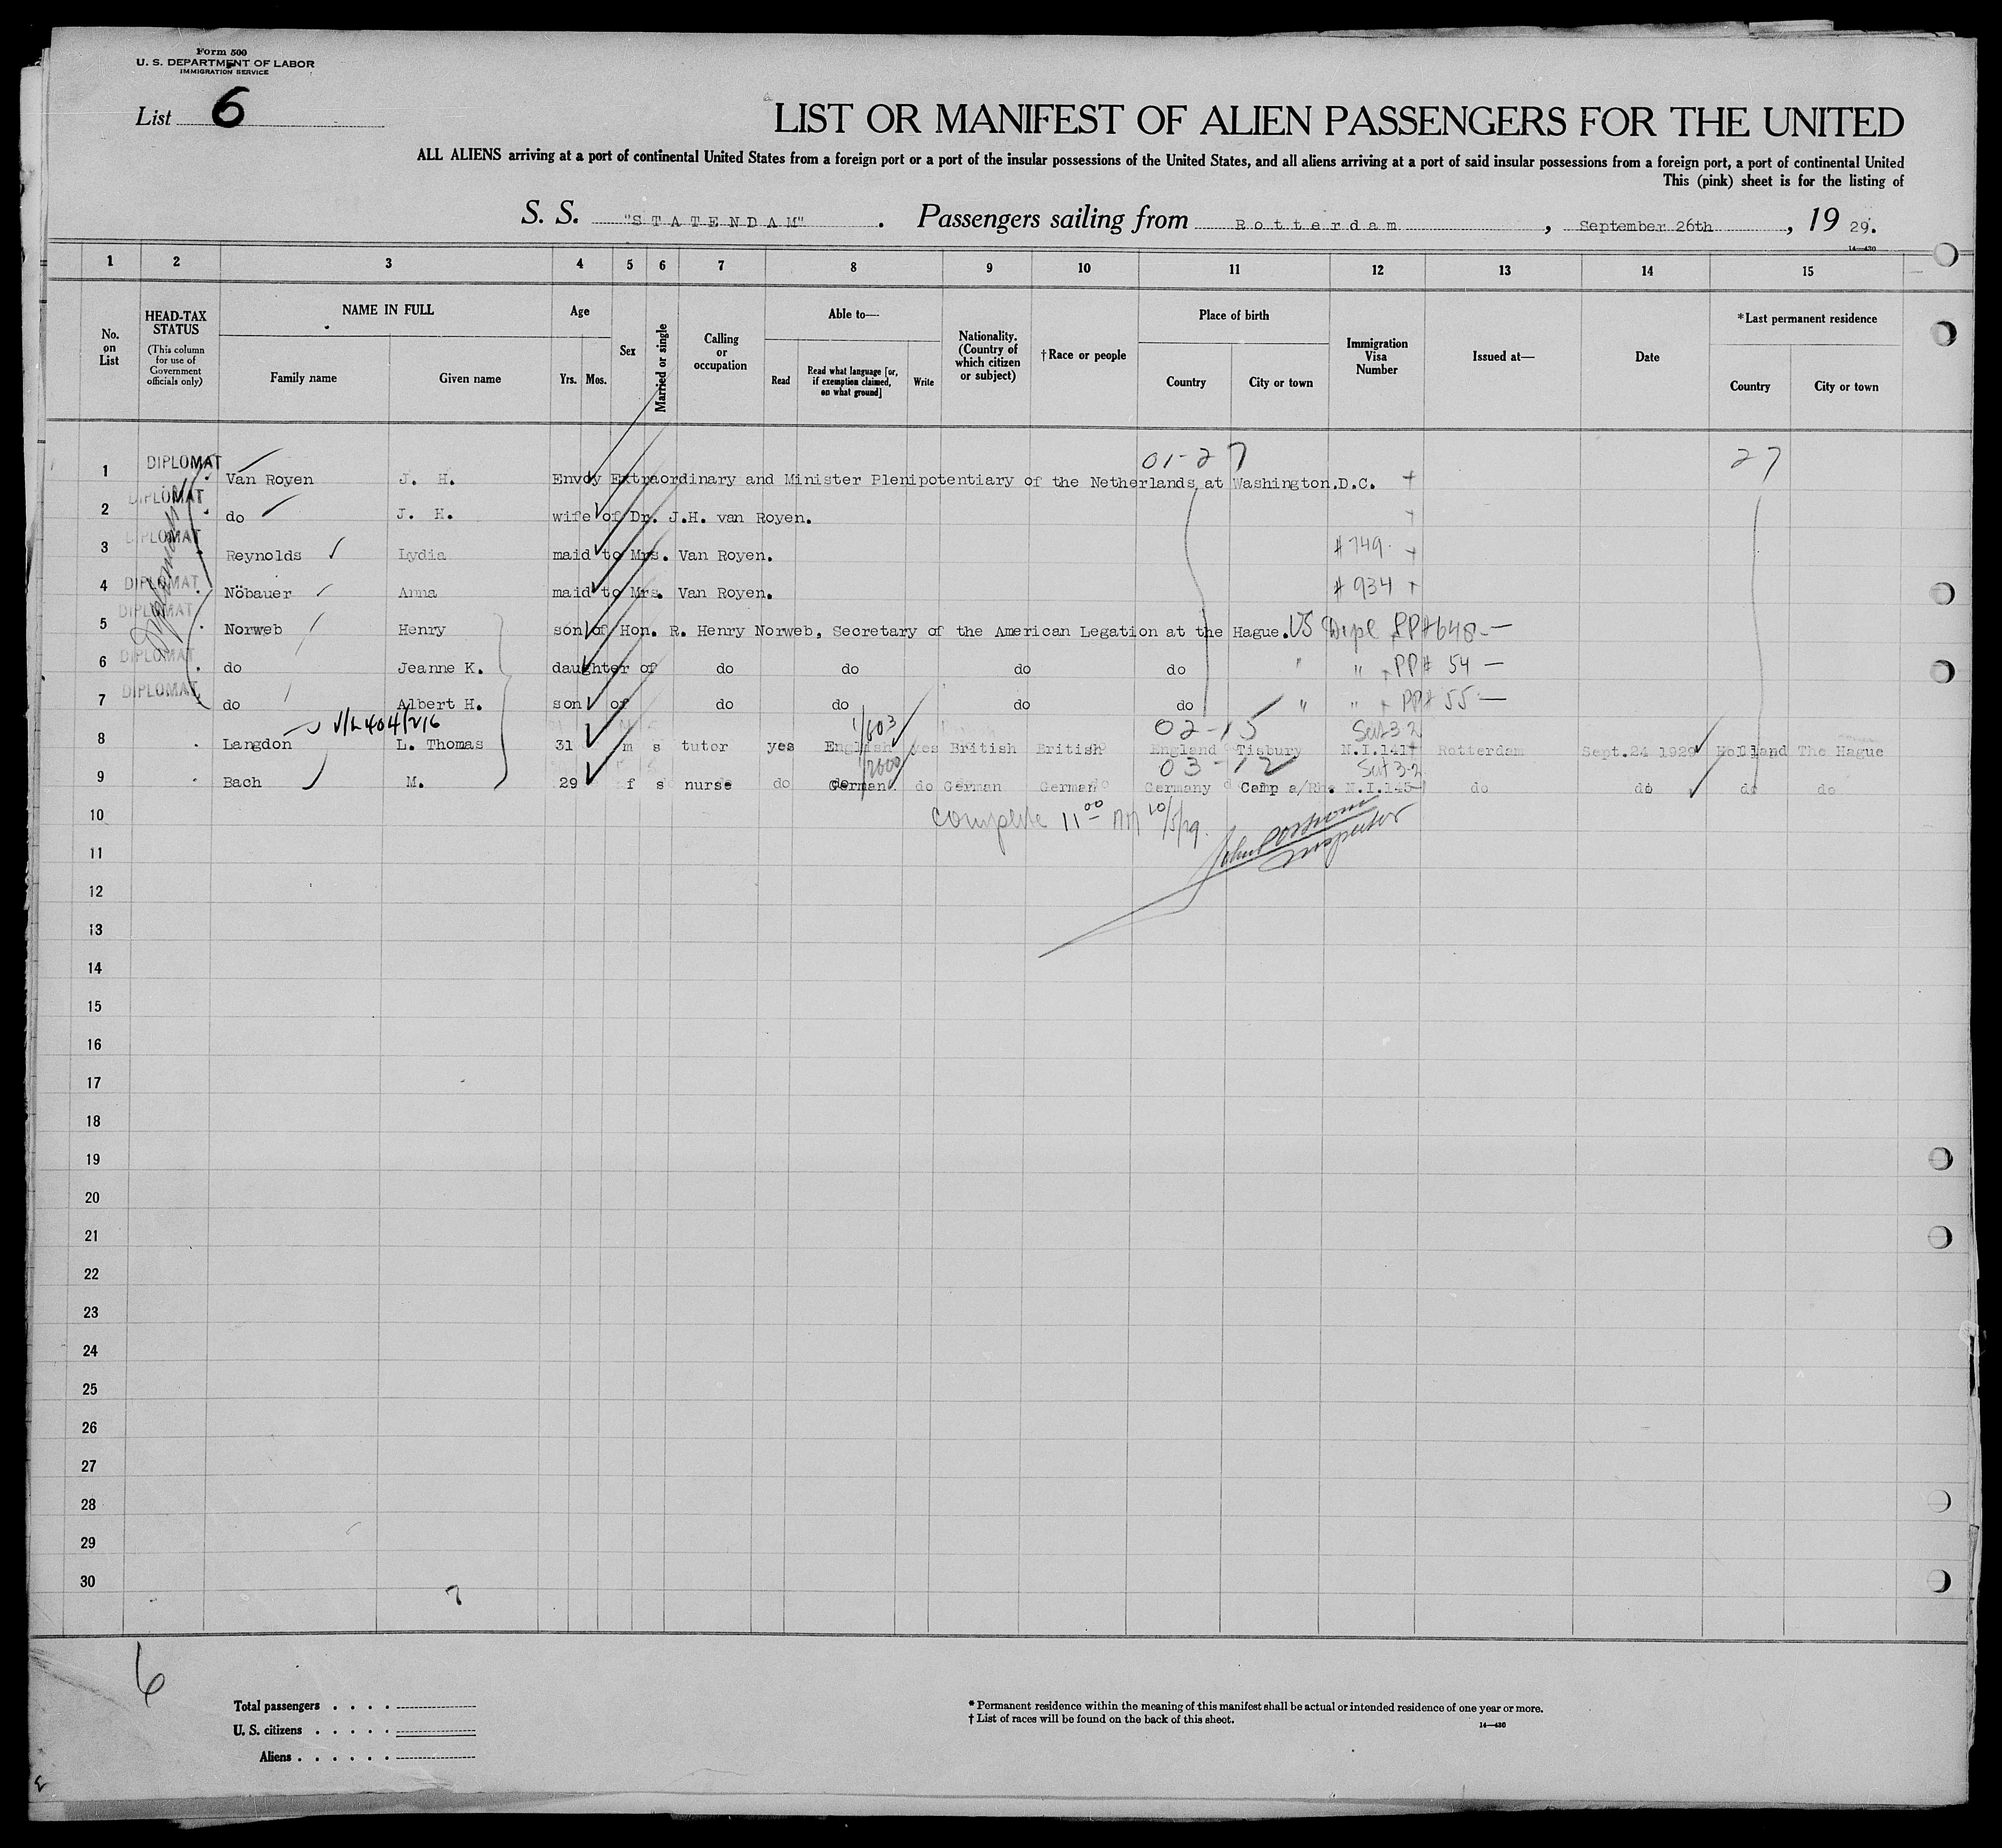 Form 500
U. S. DEPARTMENT OF LABOR
IMMIGRATION SERVICE
List 6
LIST OR MANIFEST OF ALIEN PASSENGERS FOR THE UNITED
ALL ALIENS arriving at a port of continental United States from a foreign port or a port of the insular possessions of the United States, and all aliens arriving at a port of said insular possessions from a foreign port, a port of continental United
This (pink) sheet is for the listing of
S. S. "STATENDAM". Passengers sailing from Rotterdam, September 26th, 19 29.
14—430
1 2 3 4 5 6 7 8 9 10 11 12 13 14 15
No. on List
HEAD-TAX STATUS (This column for use of Government officials only)
NAME IN FULL
Family name Given name
Age
Yrs. Mos.
Sex
Married or single
Calling or occupation
Able to—
Read
Read what language [or, if exemption claimed, on what ground]
Write
Nationality. (Country of which citizen or subject)
†Race or people
Place of birth
Country City or town
Immigration Visa Number
Issued at—
Date
*Last permanent residence
Country City or town
01-27 27
1 DIPLOMAT Van Royen J. H. Envoy Extraordinary and Minister Plenipotentiary of the Netherlands at Washington.D.C.
2 DIPLOMAT do J. H. wife of Dr. J.H. van Royen.
3 DIPLOMAT Reynolds Lydia maid to Mrs. Van Royen. #749
4 DIPLOMAT Nöbauer Anna maid to Mrs. Van Royen. #934
5 DIPLOMAT Norweb Henry son of Hon. R. Henry Norweb, Secretary of the American Legation at the Hague. US Dipl PP#648—
6 DIPLOMAT do Jeanne K. daughter of do do do do " " PP# 54 —
7 DIPLOMAT do Albert H. son of do do do do " " PP# 55 —
1/603 02-15 Sect 3-2
8 Langdon L. Thomas 31 m s tutor yes English yes British British England Tisbury N.I.141 Rotterdam Sept.24 1929 Holland The Hague
1/2600 03-12 Sect 3-2
9 Bach M. 29 f s nurse do German do German German Germany Camp a/Rh. N.I.145 do do do do
10 complete 11 00 AM 10/5/29.
11 Inspector
12
13
14
15
16
17
18
19
20
21
22
23
24
25
26
27
28
29
30
7
6
Total passengers
U. S. citizens
Aliens
* Permanent residence within the meaning of this manifest shall be actual or intended residence of one year or more.
† List of races will be found on the back of this sheet.
14—430